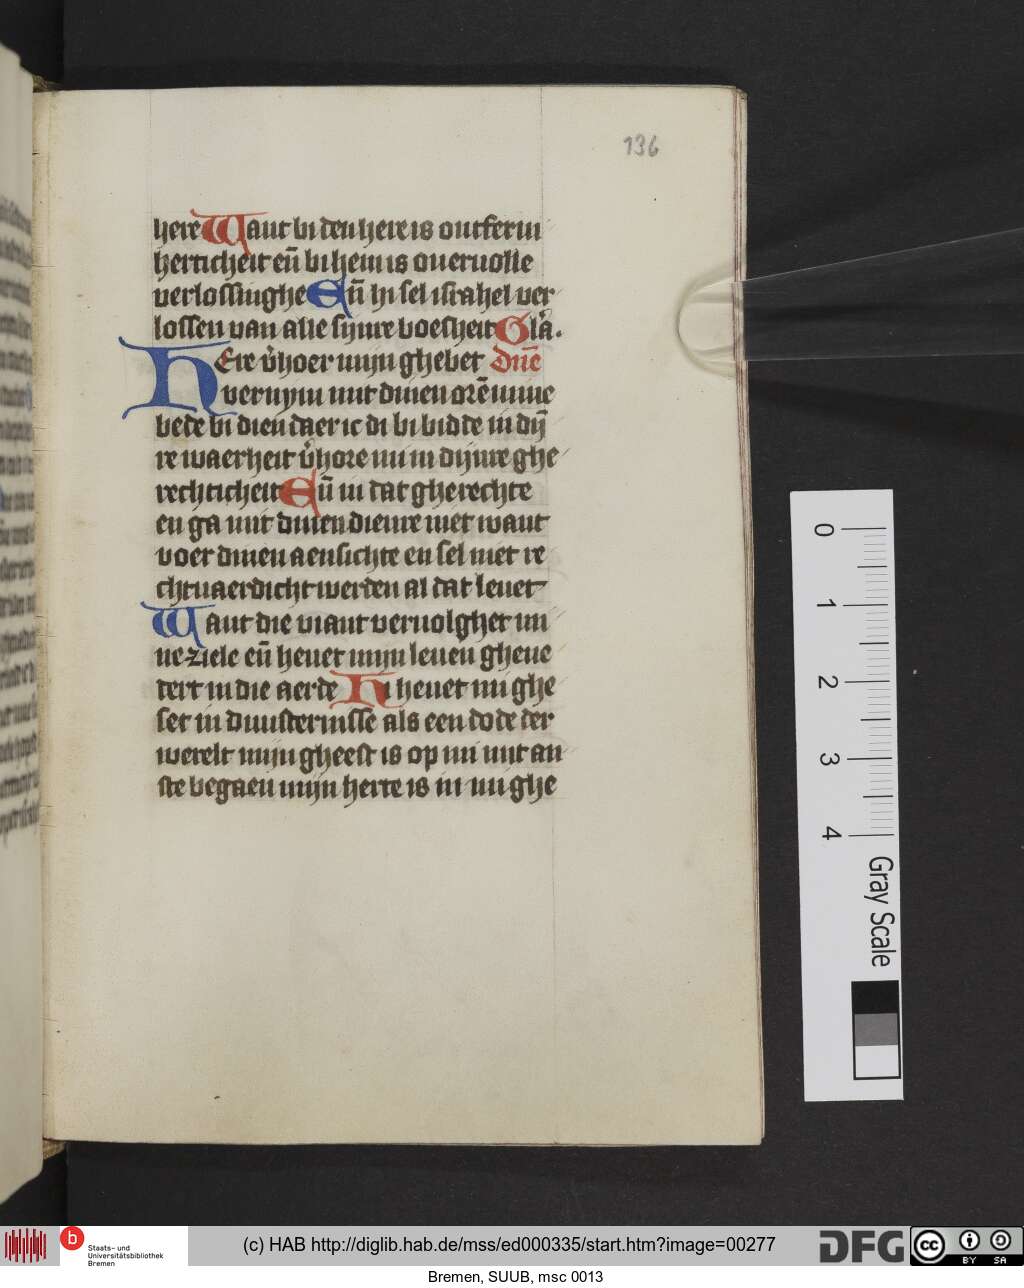 136
here Want bi den here is ontferm
herticheit eñ bi hem is ouervolle
verlossinghe Eñ hi sel israhel ver
lossen van alle sijnre boesheit Gl'a.
HEre v'hoer mijn ghebet Dñe
vernym mit dinen orē mine
bede bi dien daer ic di bi bidde in dij̄
re waerheit v'hore mi in dijnre ghe
rechticheit Eñ in dat gherechte
en ga mit dinen dienre niet want
voer dinen aensichte en sel niet re
chtuaerdicht werden al dat leuet
Want die viant veruolghet mi
ne ziele eñ heuet mijn leuen gheue
dert in die aerde Hi heuet mi ghe
set in duusternisse als een dode der
werelt mijn gheest is op mi mit an
ste begaen mijn herte is in mi ghe
0
1
2
3
4
Gray Scale
b
Staats- und
Universitätsbibliothek
Bremen
(c) HAB http://diglib.hab.de/mss/ed000335/start.htm?image=00277
DFG
cc
BY SA
Bremen, SUUB, msc 0013